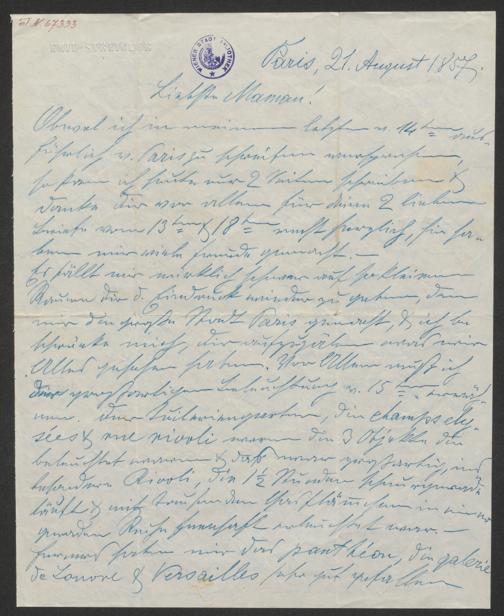 N 67333
WIENER STADT BIBLIOTHEK
Paris, 21. August 1857.
Liebste Maman!
Obwol ich in meinem letzten v. 14ten aus-
führlich v. Paris zu schreiben versprochen,
so kann ich heute nur 2 Seiten schreiben &
danke dir vor allem für deine 2 lieben
Briefe vom 13ten & 18ten recht herzlich, sie ha-
ben mir viele Freude gemacht.
Es fällt mir wirklich schwer auf so kleinem
Raum dir d. Eindruck wieder zu geben, den
mir die große Stadt Paris gemacht, & ich be-
schränke mich, dir aufzuzälen was wir
Alles gesehen haben. Vor Allem muß ich
der großartigen Beleuchtung v. 15ten erwäh-
nen. Der Tuileriengarten, die champs ely-
sées & rue rivoli waren die 3 Objekte die
beleuchtet waren & das war großartig, ins
besondere Rivoli, die 1½ Stunden schnurgerade
läuft & mit tausenden Gasflämchen in einer
geraden Reihe erleuchtet war.
Ferner haben mir das panthéon, die galerie
de Louvre & Versailles sehr gut gefallen